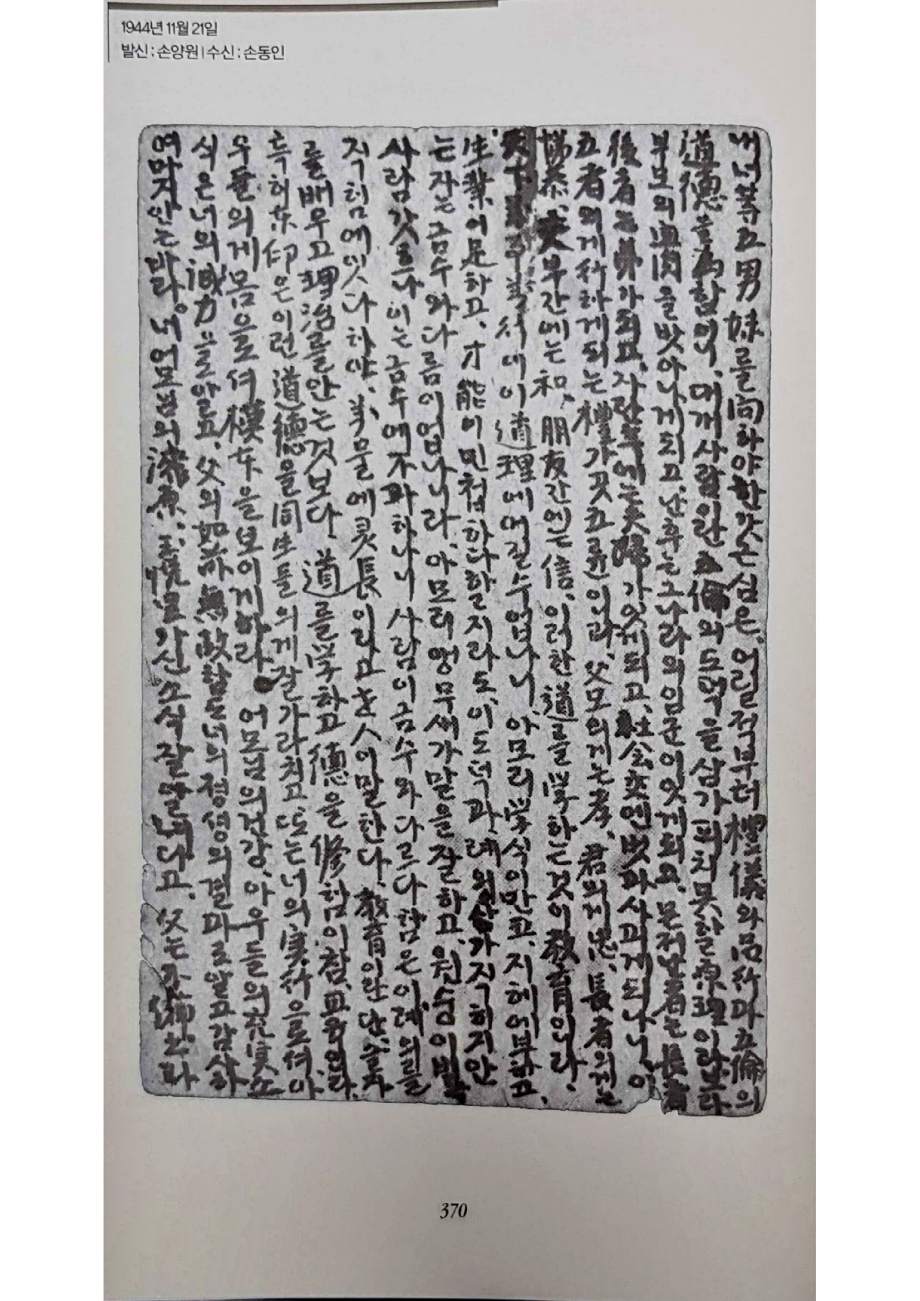 1944년 11월 21일
발신 : 손양원 | 수신 : 손동인
내 너 등 五男妹를 向하야 한갓 는 심은, 어릴 적부터 禮儀와 品行과 五倫의
道德을 爲함이니, 대개 사람이란 五倫의 도덕을 삼가 피치 못할 原理이라 보라
부모의 血肉을 밧아나게 되고 난 후는 그 나라의 임군이 잇게 되고, 몬저 난 者는 長者
後者는 弟가 되고, 자란 후에는 夫婦가 잇게 되고, 社会交엔 벗과 사괴게 되나니, 이
五者의게 行하게 되는 禮가 곳 五倫이라, 父모의게는 孝, 君의게 忠, 長者의게는
恭, 夫부간에는 和, 朋友간에는 信, 이러한 道를 学하는 것이 敎育이니라.
이 道理에 버질 수 업나니 아모리 学식이 만고, 지혜에 부하고,
生業이 足하고, 才能이 민첩하다 할지라도, 이 도덕과 례의삼가 직히지 안
는 자는 금수와 다름이 업나니라, 아모리 앵무새가 말을 잘하고, 원숭이 비록
사람 갓흐나 이는 금수에 가까하나니 사람이 금수와 다르다 함은 이 례의를
직힘에 잇나 하야, 萬물에 灵長이라고 古人이 말한다. 敎育이란 단 글자
를 배우고 理治를 안는 것보다, 道를 学하고 德을 修함이 참 교육이라
특히 東印은 이런 道德을 同生들의게 잘 가라처고 또는 너의 実行으로서 아
우들의게 몸으로서 模本을 보이게 하라. 어모님의 건강, 아우들의 充実소
식은 너의 誠力을 알고, 父의 如前無故함도 너의 정성의 결과로 알고 감사하
여마지안는 바라. 네 어모님의 가신 소식 잘 알 내다고. 父는 쓰라